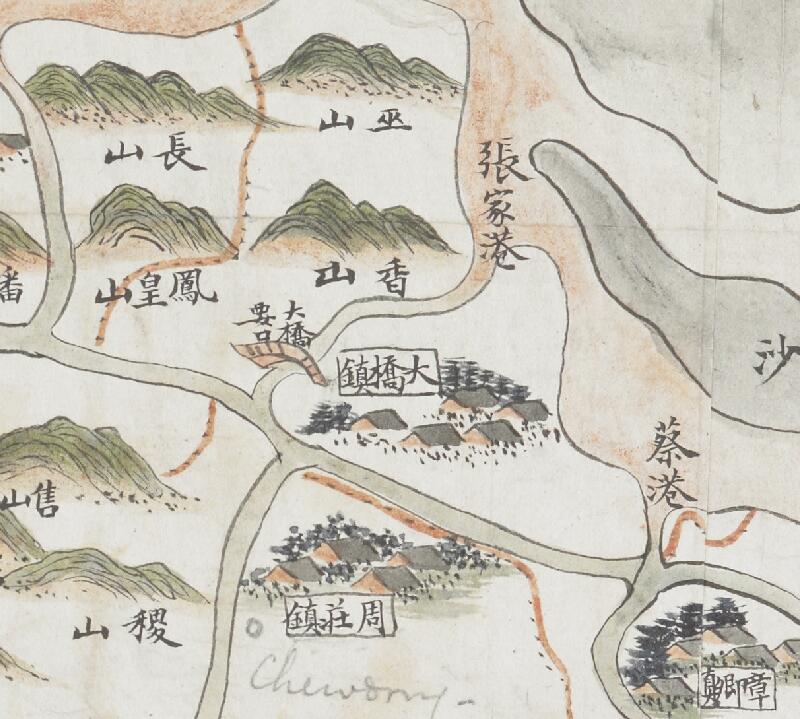 巫山
長山
張家港
香山
鳳皇山
番
大橋
要口
大橋鎮
沙
蔡港
售山
稷山
周莊鎮
章卿鎮